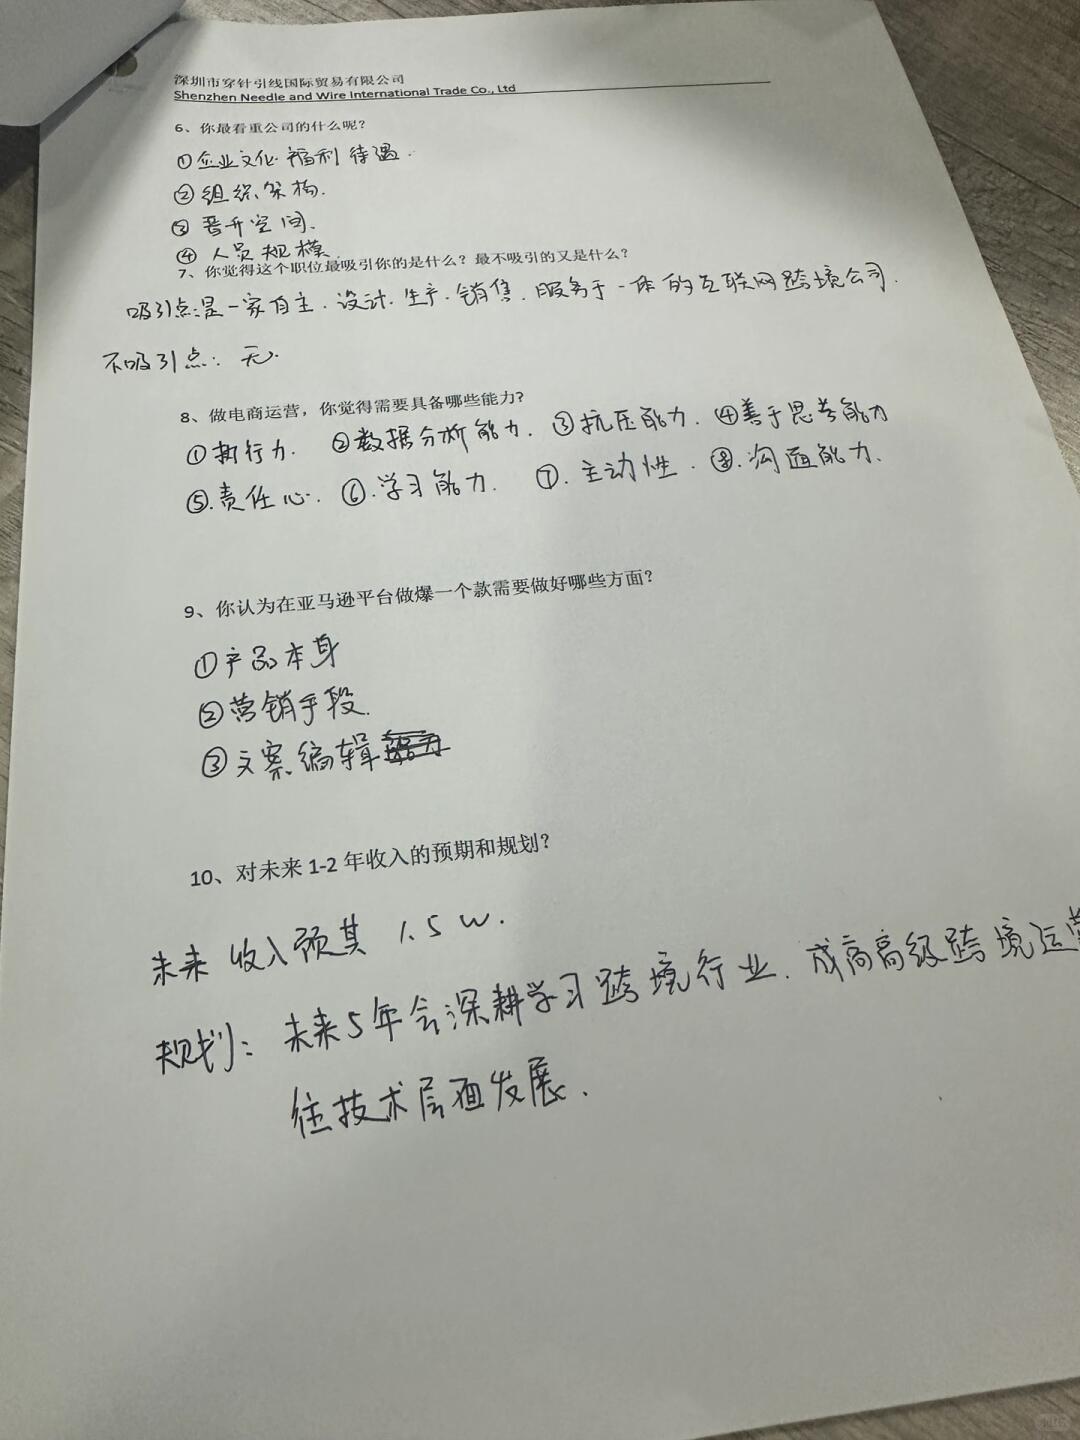 深圳市穿针引线国际贸易有限公司
Shenzhen Needle and Wire International Trade Co., Ltd
6、你最看重公司的什么呢?
①企业文化·福利待遇.
②组织架构.
③晋升空间.
④人员规模.
7、你觉得这个职位最吸引你的是什么? 最不吸引的又是什么?
吸引点:是一家自主.设计.生产.销售.服务于一体的互联网跨境公司.
不吸引点: 无.
8、做电商运营，你觉得需要具备哪些能力?
①执行力. ②数据分析能力. ③抗压能力. ④善于思考能力
⑤.责任心. ⑥.学习能力. ⑦.主动性. ⑧.沟通能力.
9、你认为在亚马逊平台做爆一个款需要做好哪些方面?
①产品本身
②营销手段.
③文案编辑
10、对未来 1-2 年收入的预期和规划?
未来收入预其 1.5w.
规划: 未来5年会深耕学习跨境行业. 成高高级跨境运营
往技术层面发展.